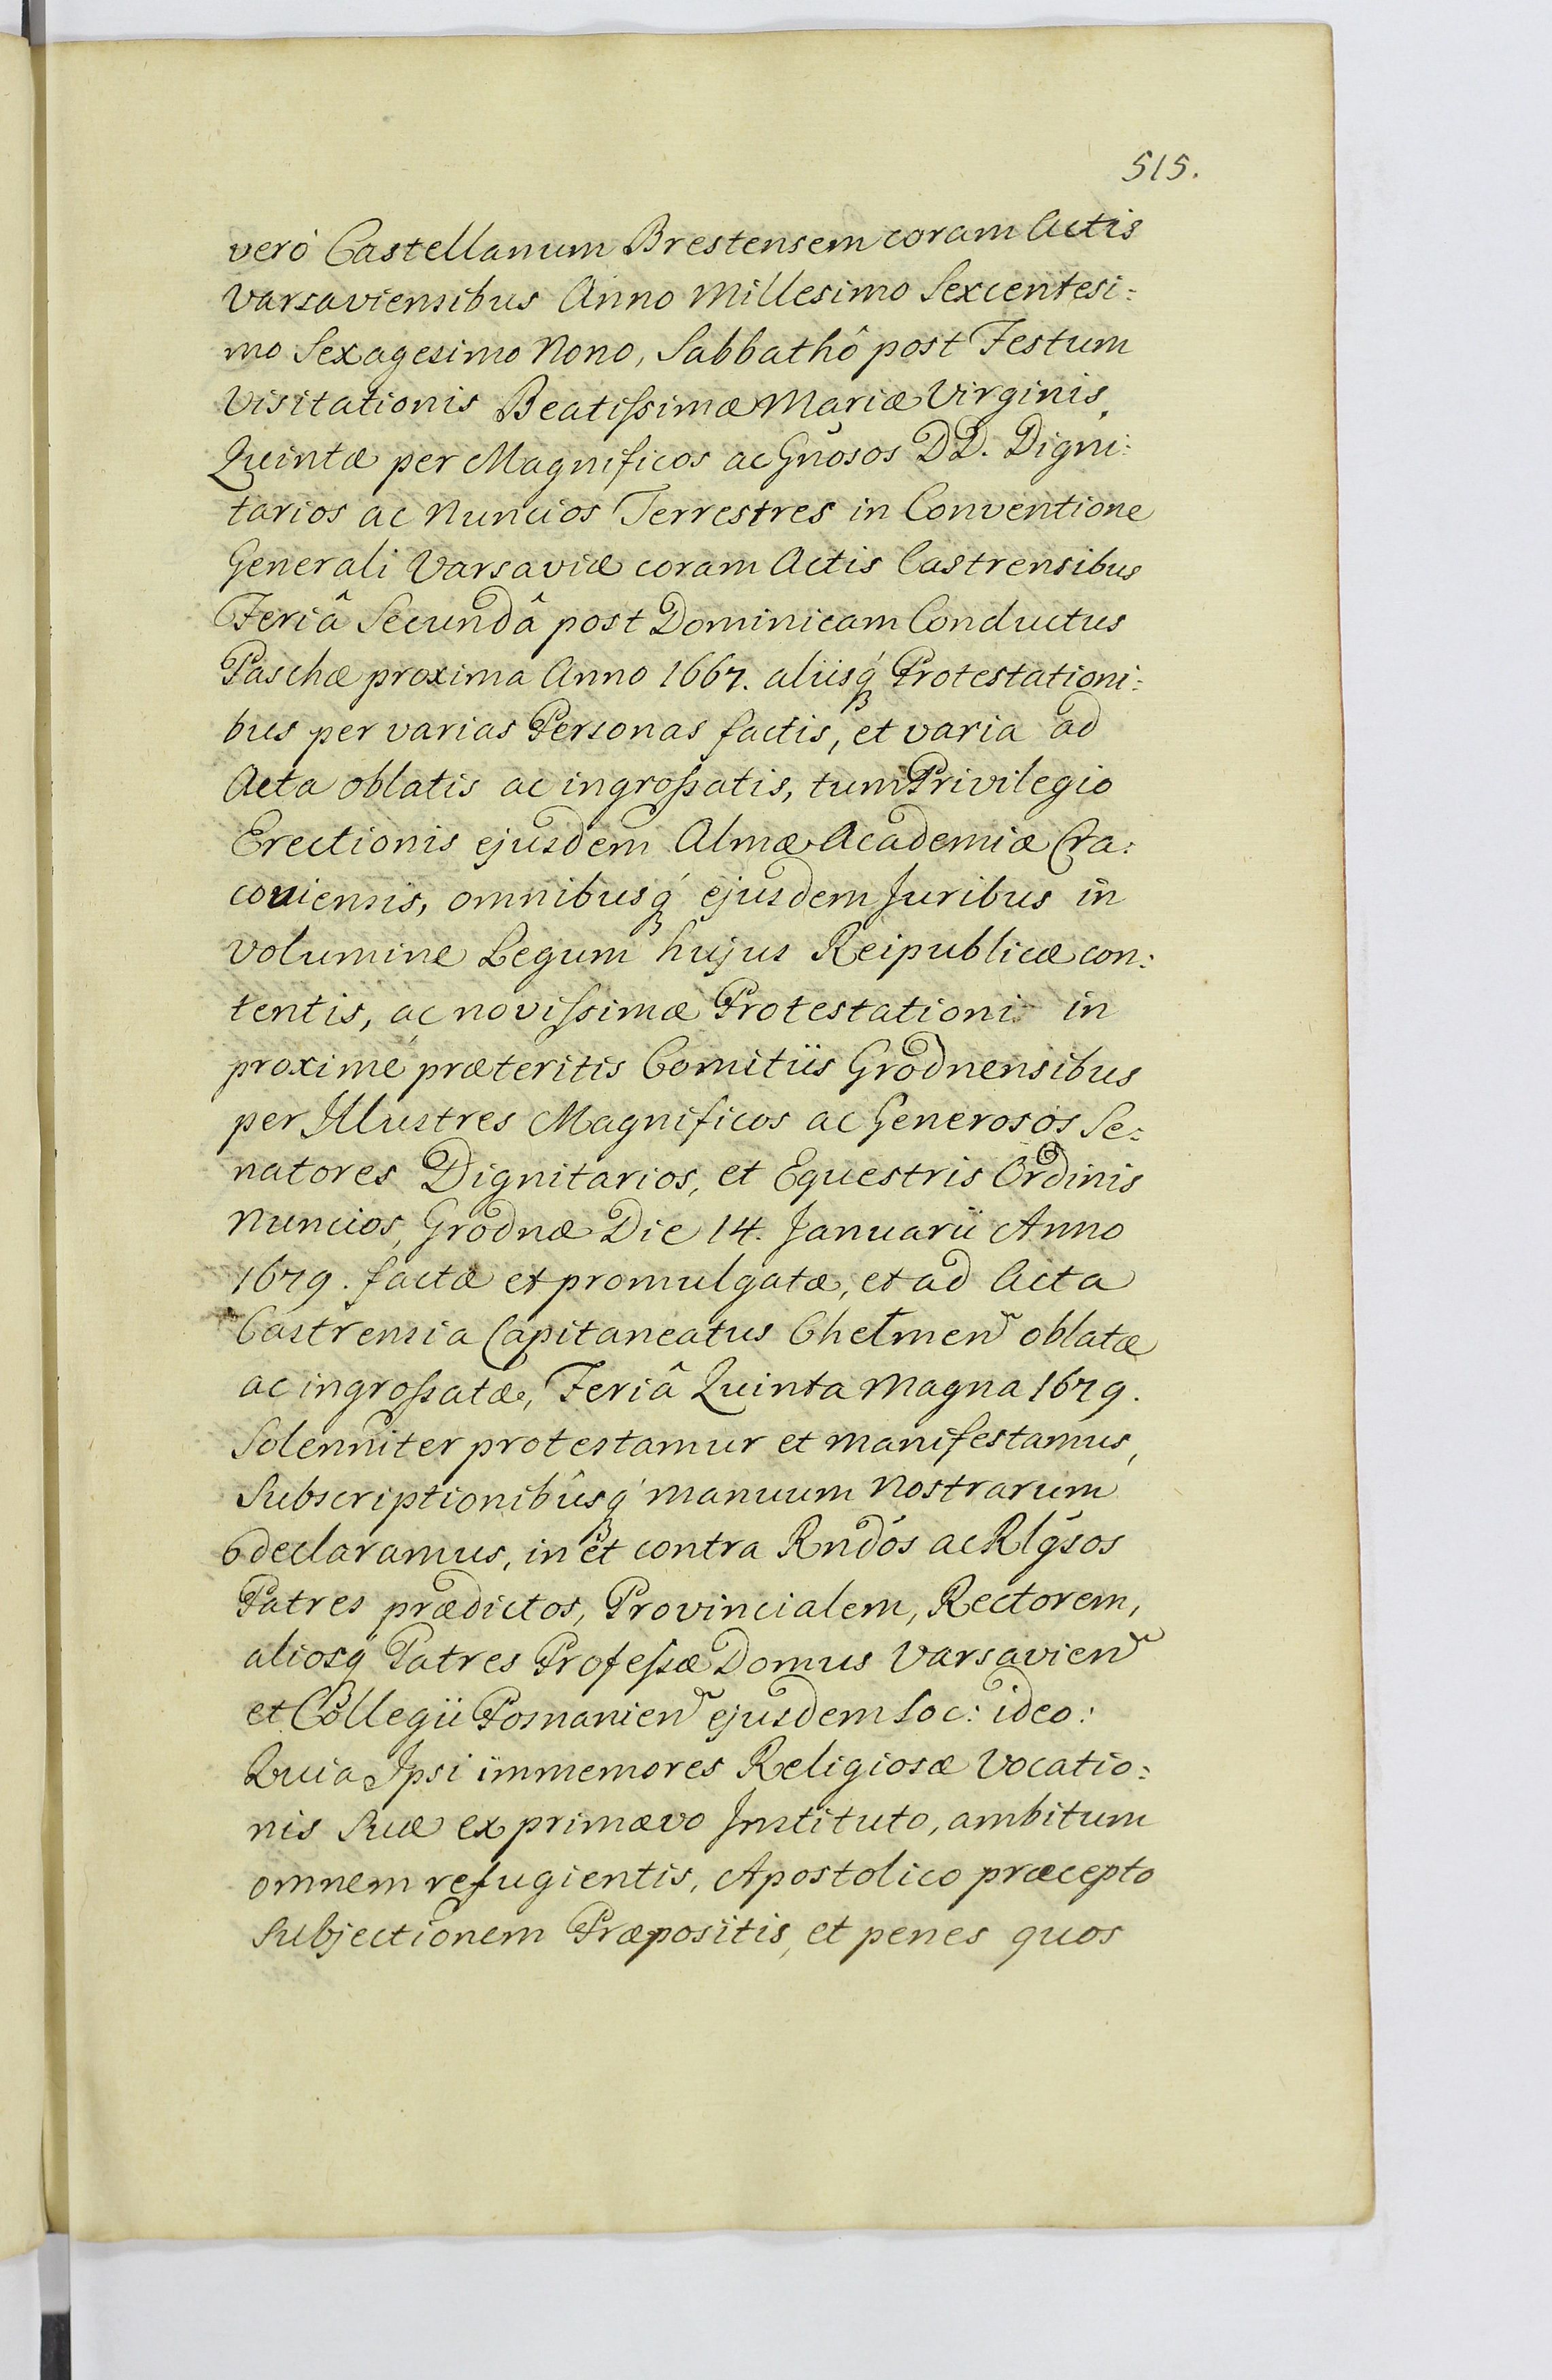 515.
verò Castellanum Brestensem coram Actis
Varsaviensibus Anno Millesimo Sexcentesi:
mo Sexagesimo Nono, Sabbathô post Festum
Visitationis Beatissimæ Mariæ Virginis,
Quintæ per Magnificos ac Gnõsos DD. Digni:
tarios ac Nuncios Terrestres in Conventione
Generali Varsaviæ coram Actis Castrensibus
Feriâ Secundâ post Dominicam Conductus
Paschæ proxima Anno 1667. aliisq́ Protestationi:
bus per varias Personas factis, et varia ad
Acta oblatis ac ingrossatis, tum Privilegio
Erectionis ejusdem Almæ Academiæ Cra:
coviensis, omnibusq́ ejusdem Juribus in
volumine Legum hujus Reipublicæ con:
tentis, ac novissimæ Protestationi in
proximè præteritis Comitiis Grodnensibus
per Illustres Magnificos ac Generosos Se:
natores Dignitarios, et Equestris Ordinis
Nuncios, Grodnæ Die 14. Januarii Anno
1679. factæ et promulgatæ, et ad Acta
Castrensia Capitaneatus Chełmeñ oblatæ
ac ingrossatæ, Feriâ Quinta Magna 1679.
Solenniter protestamur et manifestamus,
Subscriptionibusq́ manuum nostrarum
declaramus, in et contra Rndõs ac Rlgĩsos
Patres prædictos, Provincialem, Rectorem,
aliosq́ Patres Professæ Domus Varsavieñ
et Collegii Posnanieñ ejusdem Soc: ideo:
Quia Ipsi immemores Religiosæ Vocatio:
nis Suæ ex primævo Instituto, ambitum
omnem refugientis, Apostolico præcepto
Subjectionem Præpositis, et penes quos